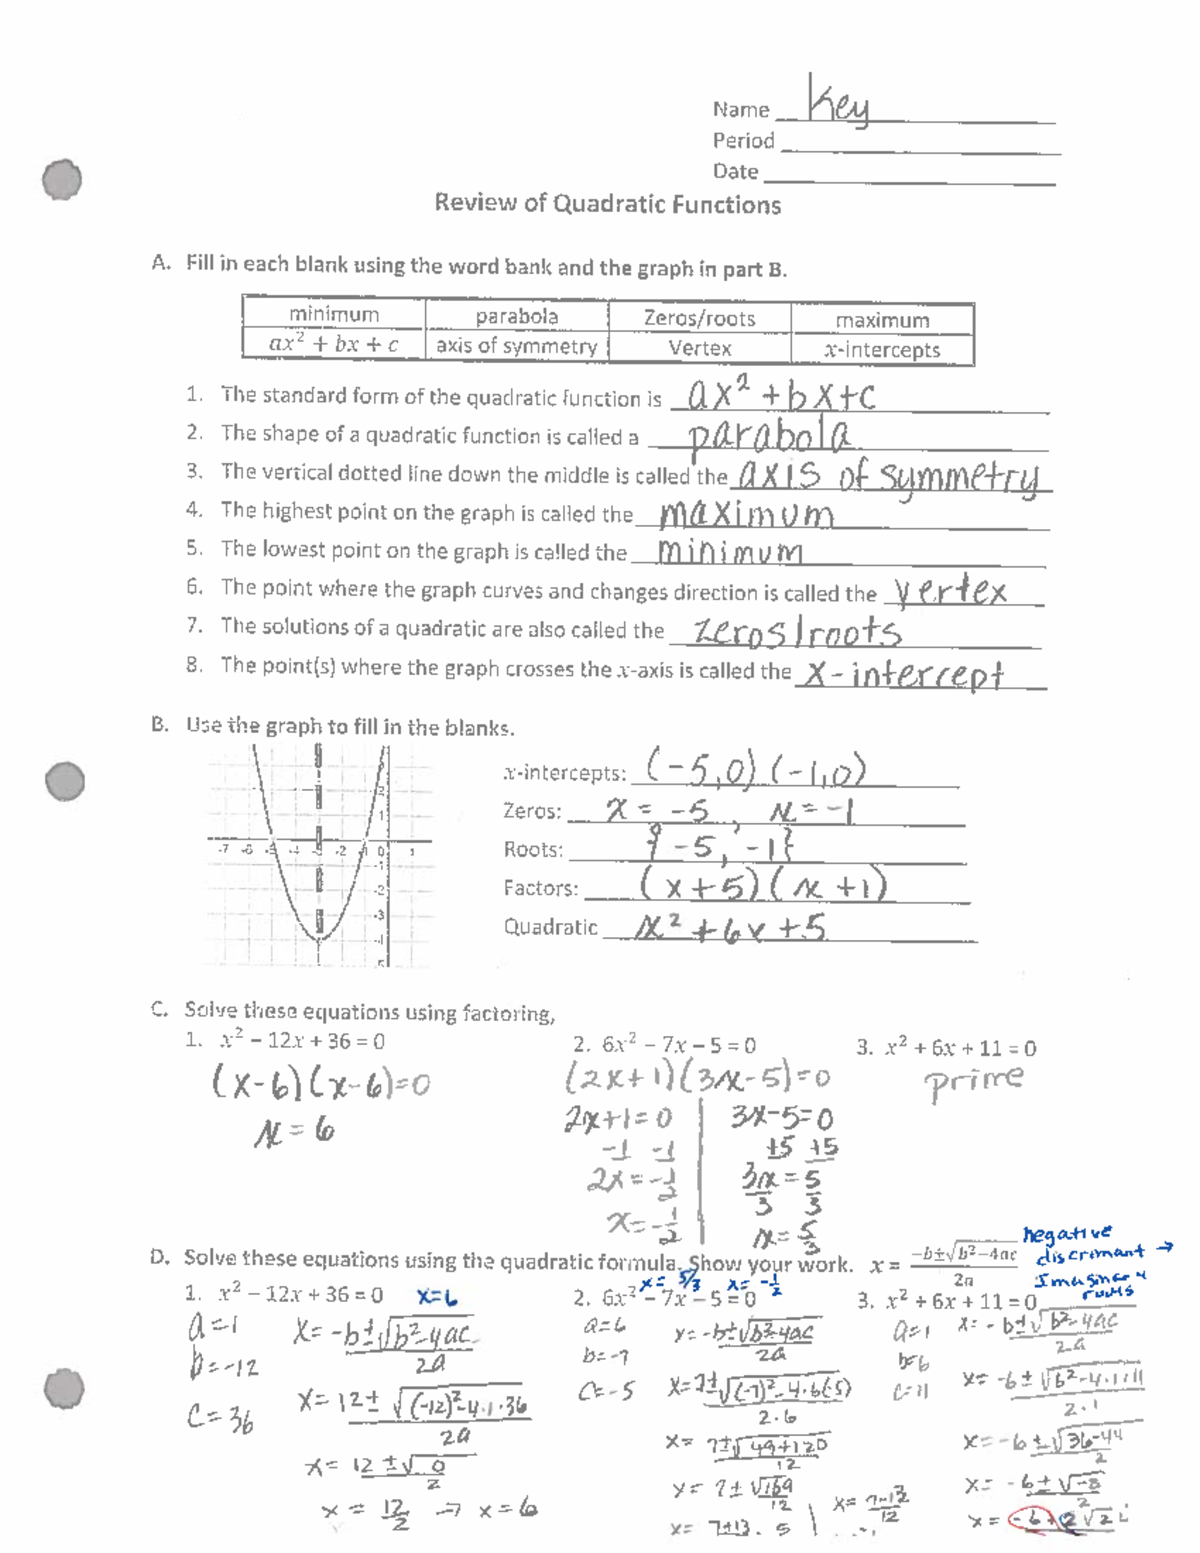 Name Key
Period
Date
Review of Quadratic Functions
A. Fill in each blank using the word bank and the graph in part B.
minimum parabola Zeros/roots maximum
ax² + bx + c axis of symmetry Vertex x-intercepts
1. The standard form of the quadratic function is ax² + bx + c
2. The shape of a quadratic function is called a parabola
3. The vertical dotted line down the middle is called the axis of symmetry
4. The highest point on the graph is called the maximum
5. The lowest point on the graph is called the minimum
6. The point where the graph curves and changes direction is called the vertex
7. The solutions of a quadratic are also called the zeros/roots
8. The point(s) where the graph crosses the x-axis is called the x-intercept
B. Use the graph to fill in the blanks.
x-intercepts: (-5,0) (-1,0)
Zeros: x = -5, x = -1
Roots: {-5, -1}
Factors: (x+5)(x+1)
Quadratic x² + 6x + 5
2
1
-7 -6 -5 -4 -3 -2 -1 0 1
-1
-2
-3
-4
C. Solve these equations using factoring,
1. x² – 12x + 36 = 0 2. 6x² – 7x – 5 = 0 3. x² + 6x + 11 = 0
(x-6)(x-6)=0 (2x+1)(3x-5)=0 prime
x = 6 2x+1=0 3x-5=0
-1 -1 +5 +5
2x = -1 3x = 5
2 3 3
x = -1/2 x = 5/3
D. Solve these equations using the quadratic formula. Show your work. x = (-b±√b²-4ac)/2a
negative
discriminant →
Imaginary
roots
x = 5/3 x = -1/2
1. x² – 12x + 36 = 0 x=6 2. 6x² – 7x – 5 = 0 3. x² + 6x + 11 = 0
a=1 x= -b±√b²-4ac / 2a a=6 x= -b±√b²-4ac / 2a a=1 x= -b±√b²-4ac / 2a
b=-12 b=-7 b=6
c=36 x= 12±√(-12)²-4·1·36 / 2a c=-5 x= 7±√(-7)²-4·6(-5) / 2·6 c=11 x= -6±√6²-4·1·11 / 2·1
x= 12±√0 / 2 x= 7±√49+120 / 12 x= -6±√36-44 / 2
x = 12/2 → x = 6 x= 7±√169 / 12 x= 7-13 / 12 x= -6±√-8 / 2
x= 7+13 . 5 x = -6±2√2 i